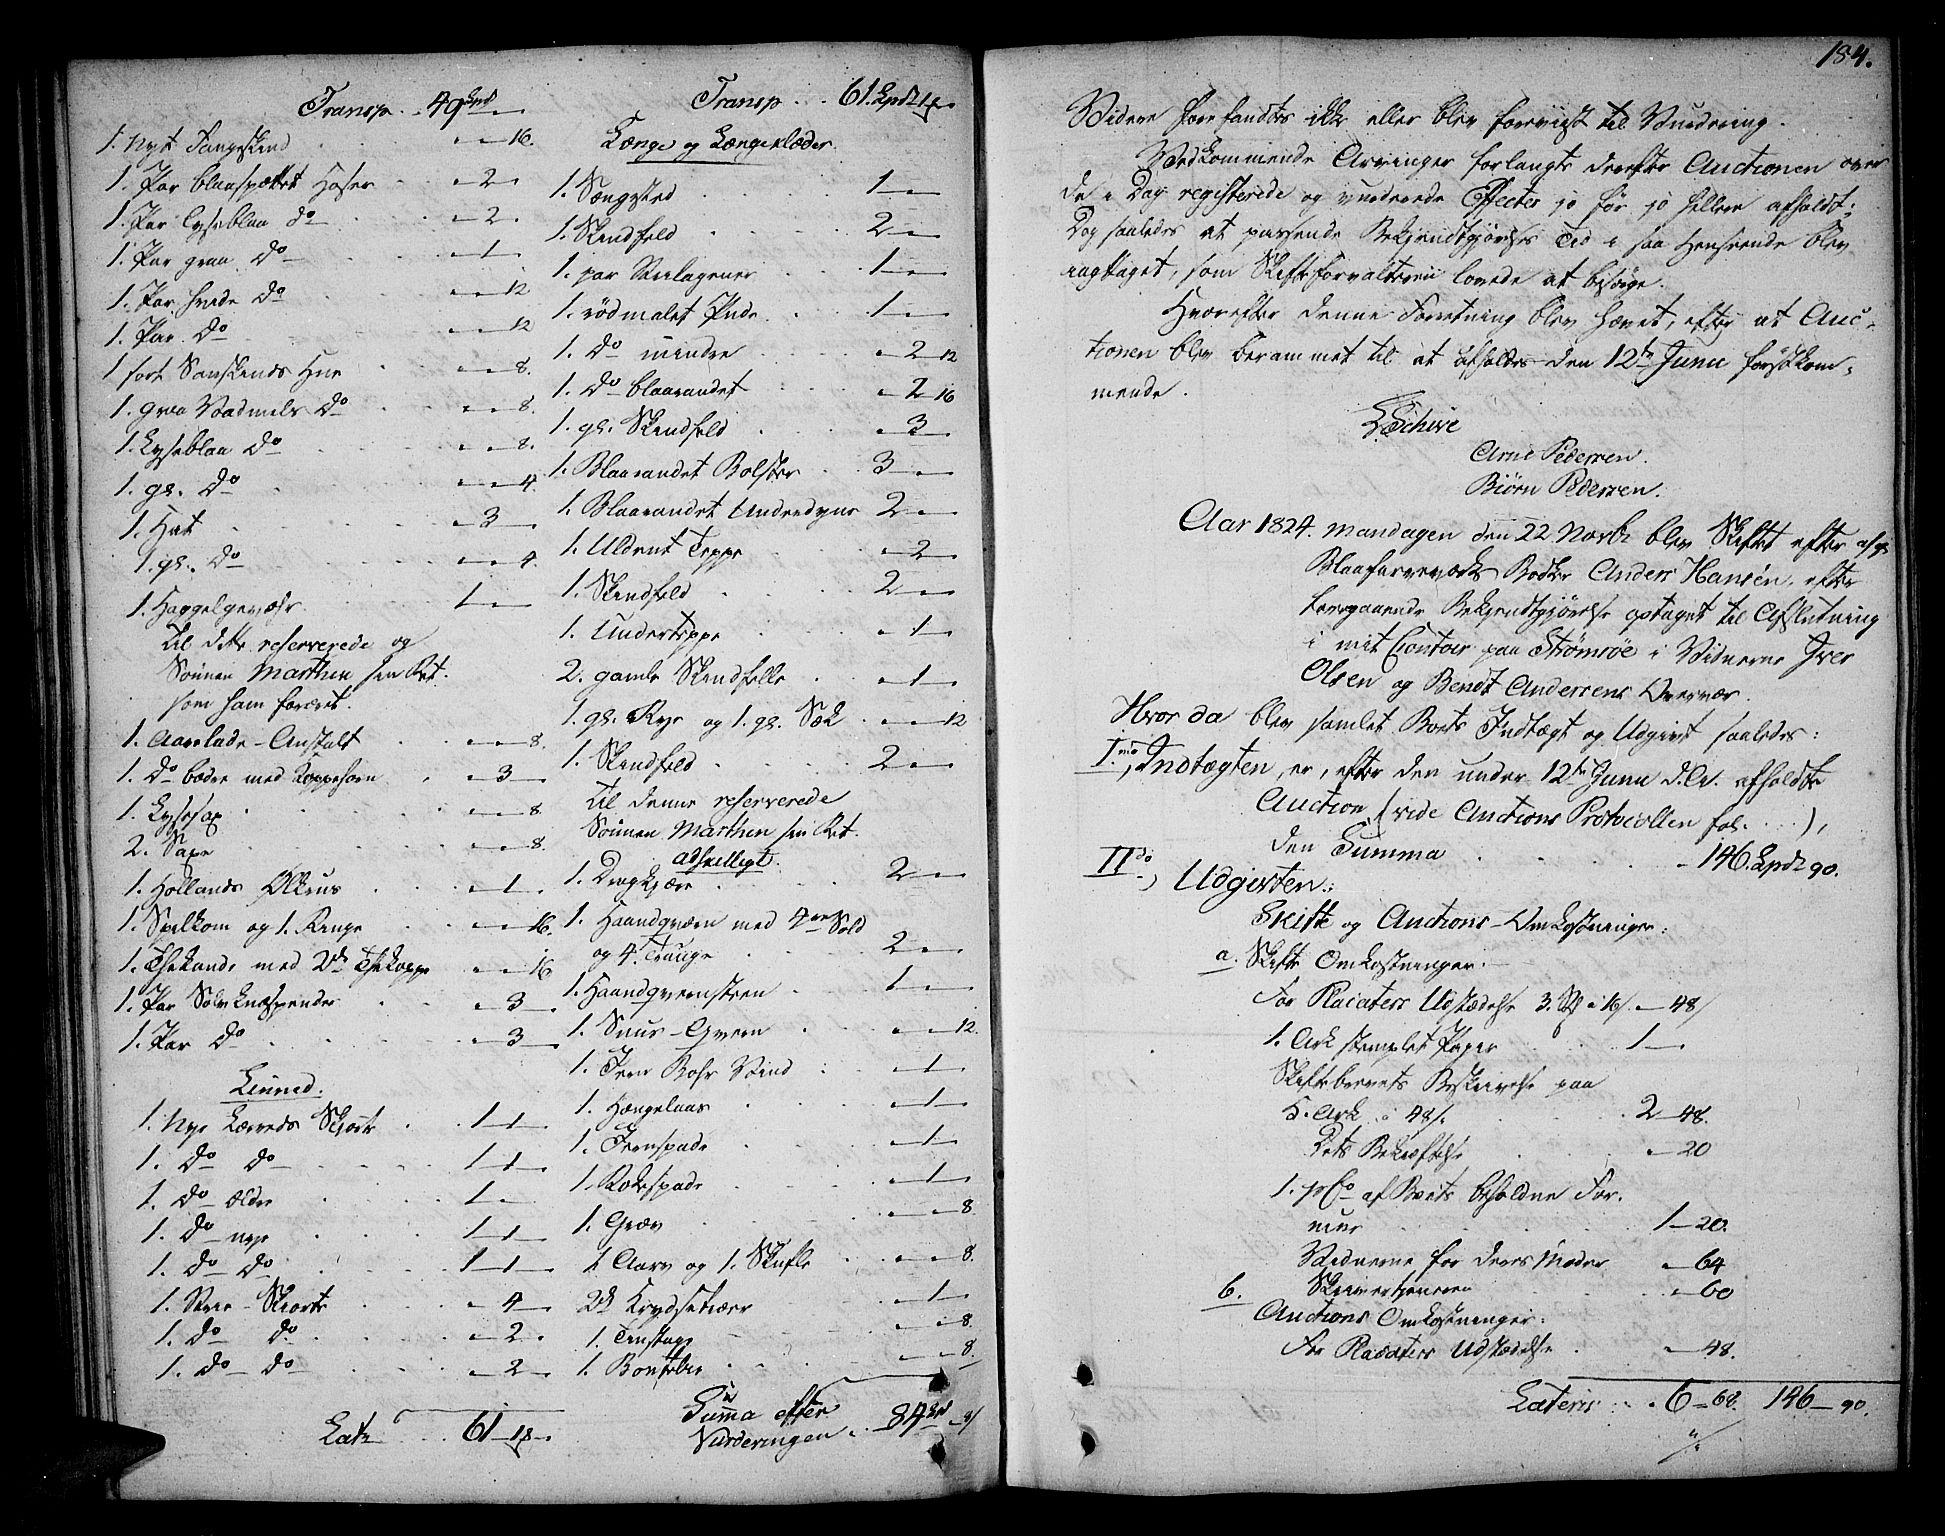 Transp . . 49 Spd —
1. Nyt Fangeskind . . " — " — 16.
1. Par blaaspættet Hoser . . " — 2 —
1. Par lyseblaa do . . " — 2 —
1. Par graa do . . " — 1 —
1. Par hvide do . . " — " — 12
1. Par do . . " — " — 12
1 sort Saueskinds Hue . . " — " — 8.
1. graa Vadmels do . . " — " — 8.
1. Lyseblaa do . . " — " — 8.
1. gl. do . . " — " — 4.
1. Hat . . " — 3 —
1. gl. do . . " — " — 4.
1. Haggelgevæhr . . 1 — " —
til dette reserverede og
Sønnen Marthin sin Ret.
som ham foræret.
1. Aarelade-Anstalt . . " — " — 8.
1. do bedre med Koppehorn . " — 3 —
1. Lysesax . . " — " — 8
2. Saxe . . " — " — 8.
1. Hollands Ølkrus . . " — 1 —
1. Spilkom og 1. Ringe . . " — " — 16.
1. Thekande med 2de Thekoppe " — " — 16
1. Par Sølv Knæspender . . " — 3 —
1. Par do . . " — 3 —
Linned.
1. Nye Lærreds Skjorte . 1 — 1 —
1. do do . . 1 — 1 —
1. do Ældre . . 1 — " —
1. do nye . . 1 — 1 —
1. do do . . 1 — 1 —
1. Strie-Skiorte . . " — 4 —
1. do do . . " — 2 —
1. do do . . " — 2 —
Lats . . 61 — 18 —
Transp . . 61. Spdr 18 —
Senge og Sengeklæder.
1. Sængsted . . 1 — " —
1. Skindfeld . . 2 — " —
1. par Striilagener . . 1 — " —
1. rødmalet Pude . . 1 — " —
1. do mindre . . " — 2 — 12
1. do blaarandet . . " — 2 — 16
1. gl. Skindfeld . . " — 3 —
1. Blaarandet Bolster . . 3 — " —
1. Blaarandet Underdyne 2 — " —
1. Uldent Teppe . . " — 2 —
1. Skindfeld . . 2 — " —
1. Underteppe . . " — 1 —
2. gamle Skindfelle . . " — 1 —
1. gl. Rye og 1. gl. Sæk . . " — " — 12
1. Skindfeld . . 2 — " —
til denne reserverede
Sønnen Marthin sin Ret.
adskilligt.
1. Dragkjære . . 2 — " —
1. Haandqværn med 4re Sold
og 4. Trauge . . 2 — " —
1. Haandqvernsteen . . 1 — " —
1. Snur-Qvern . . " — " — 12.
1. Jern Bohr Vind . . " — 1 —
1. Hængelaas . . " — 1 —
1. Jernspade . . " — 1 —
1. Rokespade . . " — 1 —
1. Græv . . " — " — 8.
1. Aarv og 1. Skuffle . . " — " — 8.
2de Krydsetræer . . " — 1 —
1. Tenstage . . " — " — 8.
1. . . " — " — 8.
Summa efter
Vurderingen . . 84 Spd — 8/
184.
Videre forefandtes ikke eller blev foreviist til Vurdering.
Vedkommende Arvinger forlangte derefter Auctionen over
de i Dag registerede og vurderede Effecter jo før jo hellere afholdt;
Dog saaledes at passende Bekjendtgjørelses Tid i saa Henseende blev
iagttaget, som Skifteforvalteren lovede at besørge.
Hvorefter denne Forretning blev hævet, efter at Auc-
tionen blev berammet til at afholdes den 12te Junii førstkom-
mende.
Schive
Arne Pedersen.
Biørn Pedersen.
Aar 1824. Mandagen den 22 Novbr blev Skiftet efter afg:
Blaafarveværks Bødker Anders Hansen, efter
foregaaende Bekjendtgjørelse optaget til Afslutning
i mit Contoir paa Strømsøe i Vidnerne Iver
Olsen og Bendt Andersens Overvær.
Hvor da blev samlet Boets Indtægt og Udgivt saaledes:
I.mo, Indtægten, er, efter den under 12te Junii d. A. afholdte
Auction (vide Auctions Protocollen fol. . . .),
den Summa . . — 146. Spdr 90.
II.do, Udgivten:
Skifte og Auctions-Omkostninger:
a. Skifte Omkostninger:
For Placaters Udstædelse 3. St à 16/ " — 48/
1. Ark stemplet Papir . . 1 — " —
Skiftebrevets Beskrivelse paa
5. Ark à 48/. . . 2 — 48.
Dets Bekræftelse . . " — 20
1. pCto af Boets beholdne For-
mue . . 1 — 20.
Vidnerne for deres Møder " — 64
Skrivertjeneren . . " — 60
b. Auctions Omkostninger:
For Placaters Udstædelse . . " — 48.
Lateris . . 6 — 68. 146 — 90.